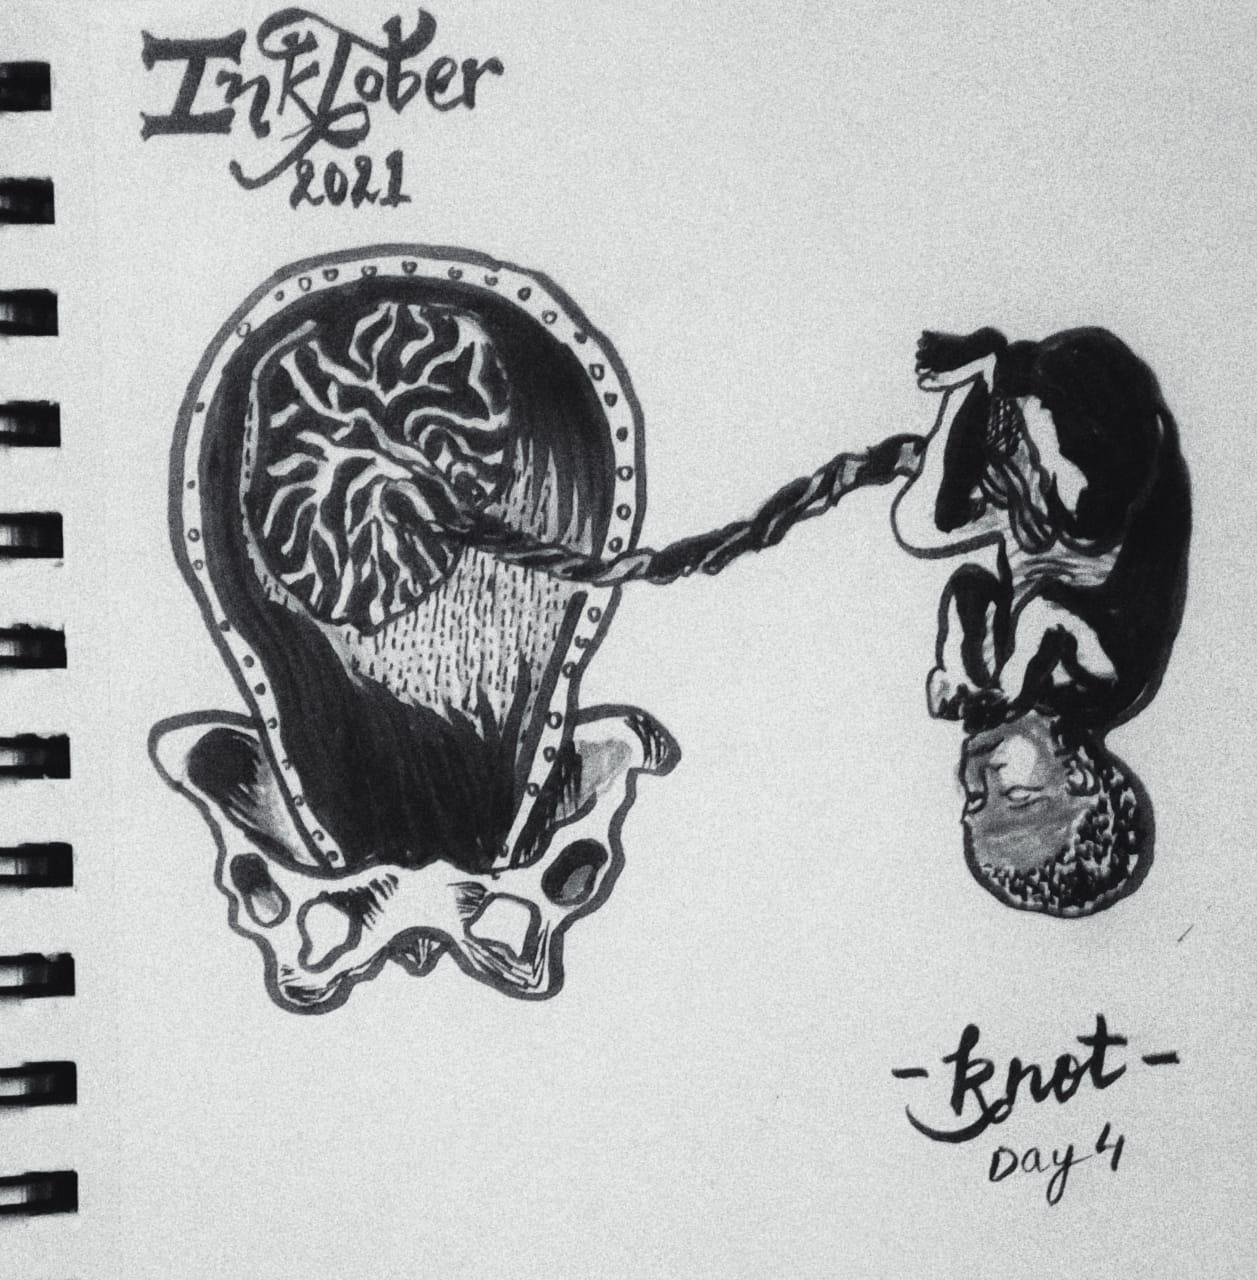 InkTober
2021
- Knot -
Day 4